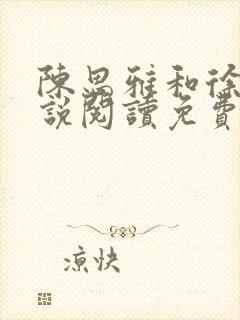 陳思雅和徐
說閱讀免費
涼快